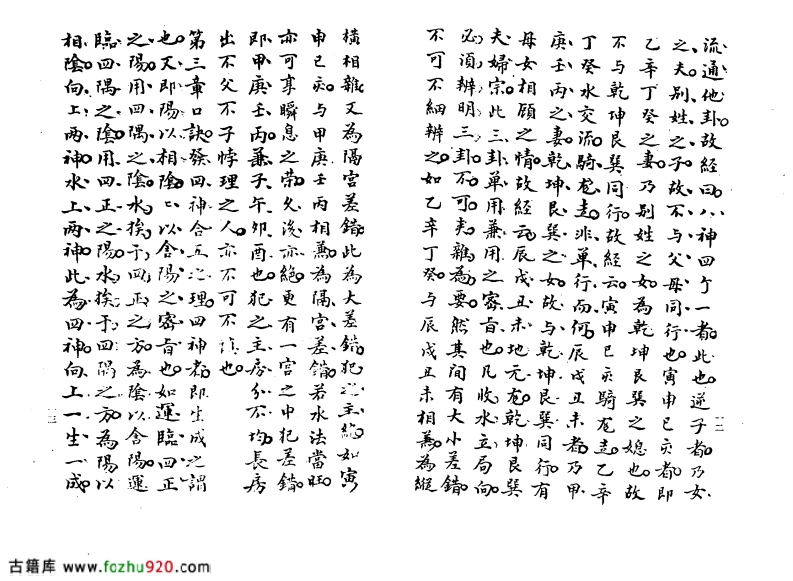 流通他卦故經曰八神四个一者此也逆子者乃女
之夫別姓之子故不与父母同行也寅申巳亥者即
乙辛丁癸之妻乃別姓之女為乾坤艮巽之媳也故
不与乾坤艮巽同行故經云寅申巳亥騎龙走乙辛
丁癸水交流騎龙走非单行而何辰戌丑未者乃甲
庚壬丙之妻乾坤艮巽之女故与乾坤艮巽同行有
母女相顾之情故經云辰戌丑未地元龙乾坤艮巽
夫婦宗此三卦单用兼用之密旨也凡收水立局向
必須辨明三卦不可夹雜為要然其间有大小差錯
不可不細辨之如乙辛丁癸与辰戌丑未相兼為縱
十二
橫相雜又為隔宫差錯此為大差錯犯之主絶如寅
申巳亥与甲庚壬丙相兼為隔宫差錯若水法當旺
亦可享瞬息之荣久後亦絶更有一宫之中犯差錯
即甲庚壬丙兼子午卯酉也犯之主房分不均長房
出不父不子悖理之人亦不可不慎也
第三章口訣發四神合五之理四神者即生成之謂
也又即陽以相陰陰以含陽之密旨也如運臨四正
之陽用四隅之陰水挨于四正之方為陰以含陽運
臨四隅之陰用四正之陽水挨于四隅之方為陽以
相陰向上两神水上两神此為四神向上一生一成
十三
古籍库 www.fozhu920.com